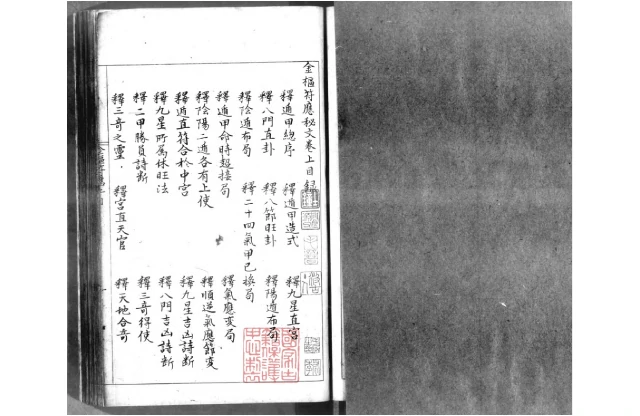 金樞符應秘文卷上目録
釋遁甲總序 釋遁甲造式 釋九星直宮
釋八門直卦 釋八節旺卦 釋陽遁布局
釋陰遁布局 釋二十四氣甲己換局
釋遁甲命時超接局 釋氣應変局
釋陰陽二遁各有上使 釋順逆氣應節变
釋遁直符合於中宮 釋九星吉凶詩断
釋九星所属休旺法 釋八門吉凶詩断
釋二甲勝負詩断 釋三奇得使
釋三奇之靈 釋宮直天官 釋天地合奇